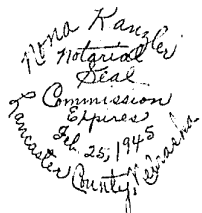 Nona Kanzler
Notarial
Seal
Commission
Expires
Feb. 25, 1945
Lancaster County, Nebraska